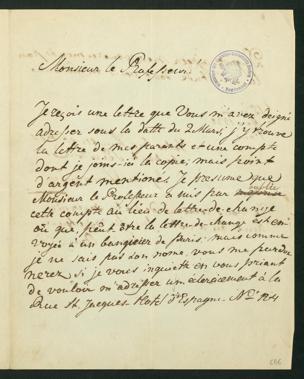 Monsieur le Professeur
Je reçois une lettre que vous m'avez deigné
adresser sous la datte du 2 Mars, j'y trouve
la lettre de mes parents et une compte
dont je joins-ici la copie, mais point
d'argent mentionés. Je presume que
Monsieur le Professeur a mis par
cette compte au lieu de lettre de change
ou que peut être la lettre de change est en-
voyée à un banquier de Paris; mais comme
je ne sais pas son nome, vous me pardon-
nerez si je vous inquiete en vous priant
de vouloir m'adresser un eclercisement à la
Rue St. Jacques Hotel d'Espagne. No.